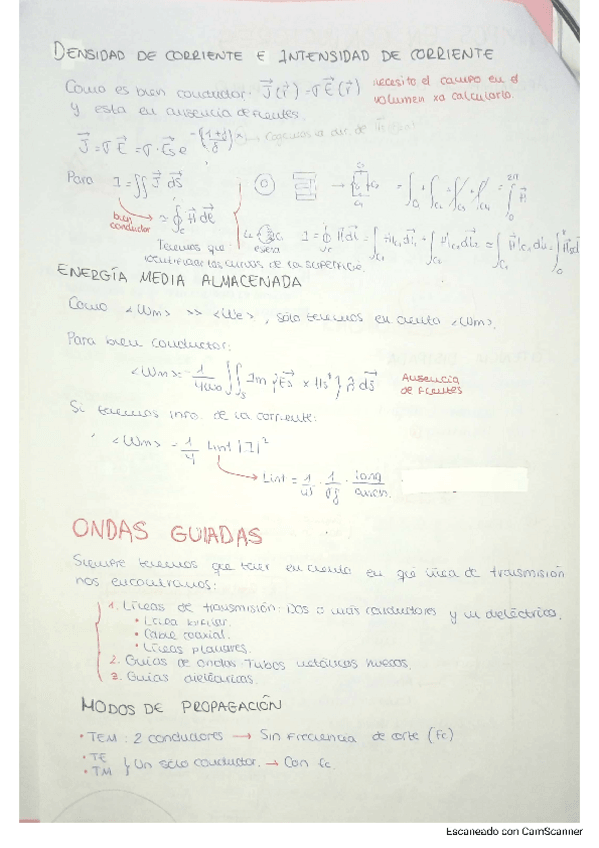 DENSIDAD DE CORRIENTE E INTENSIDAD DE CORRIENTE
Como es bien conductor: J⃗(r⃗) = σE⃗(r⃗)
necesito el campo en el
volumen xa calcularlo.
y esta en ausencia de fuentes.
J⃗ = σE⃗ = σ·E⃗s e
Para I = ∬ J⃗ dS⃗
bien
conductor
≈ ∮c H⃗ dℓ⃗
Tenemos que
identificar las curvas de la superficie.
ENERGÍA MEDIA ALMACENADA
Como <Wm> >> <We>, sólo tenemos en cuenta <Wm>.
Para bien conductor:
<Wm> = 1/4ω ∬s Im{E⃗s × Hs*} n̂ dS⃗
Ausencia
de fuentes
Si tenemos info. de la corriente:
<Wm> = 1/4 Lint |I|²
Lint = 1/ω · 1/σδ · long/anch.
ONDAS GUIADAS
Siempre tenemos que tener en cuenta en qué línea de transmisión
nos encontramos:
1. Líneas de transmisión: Dos o más conductores y un dieléctrico.
• Línea bifilar.
• Cable coaxial.
• Líneas planares.
2. Guías de ondas: Tubos metálicos huecos.
3. Guías dieléctricas.
MODOS DE PROPAGACIÓN
• TEM: 2 conductores → Sin frecuencia de corte (fc)
• TE
• TM } Un sólo conductor. → Con fc.
Escaneado con CamScanner